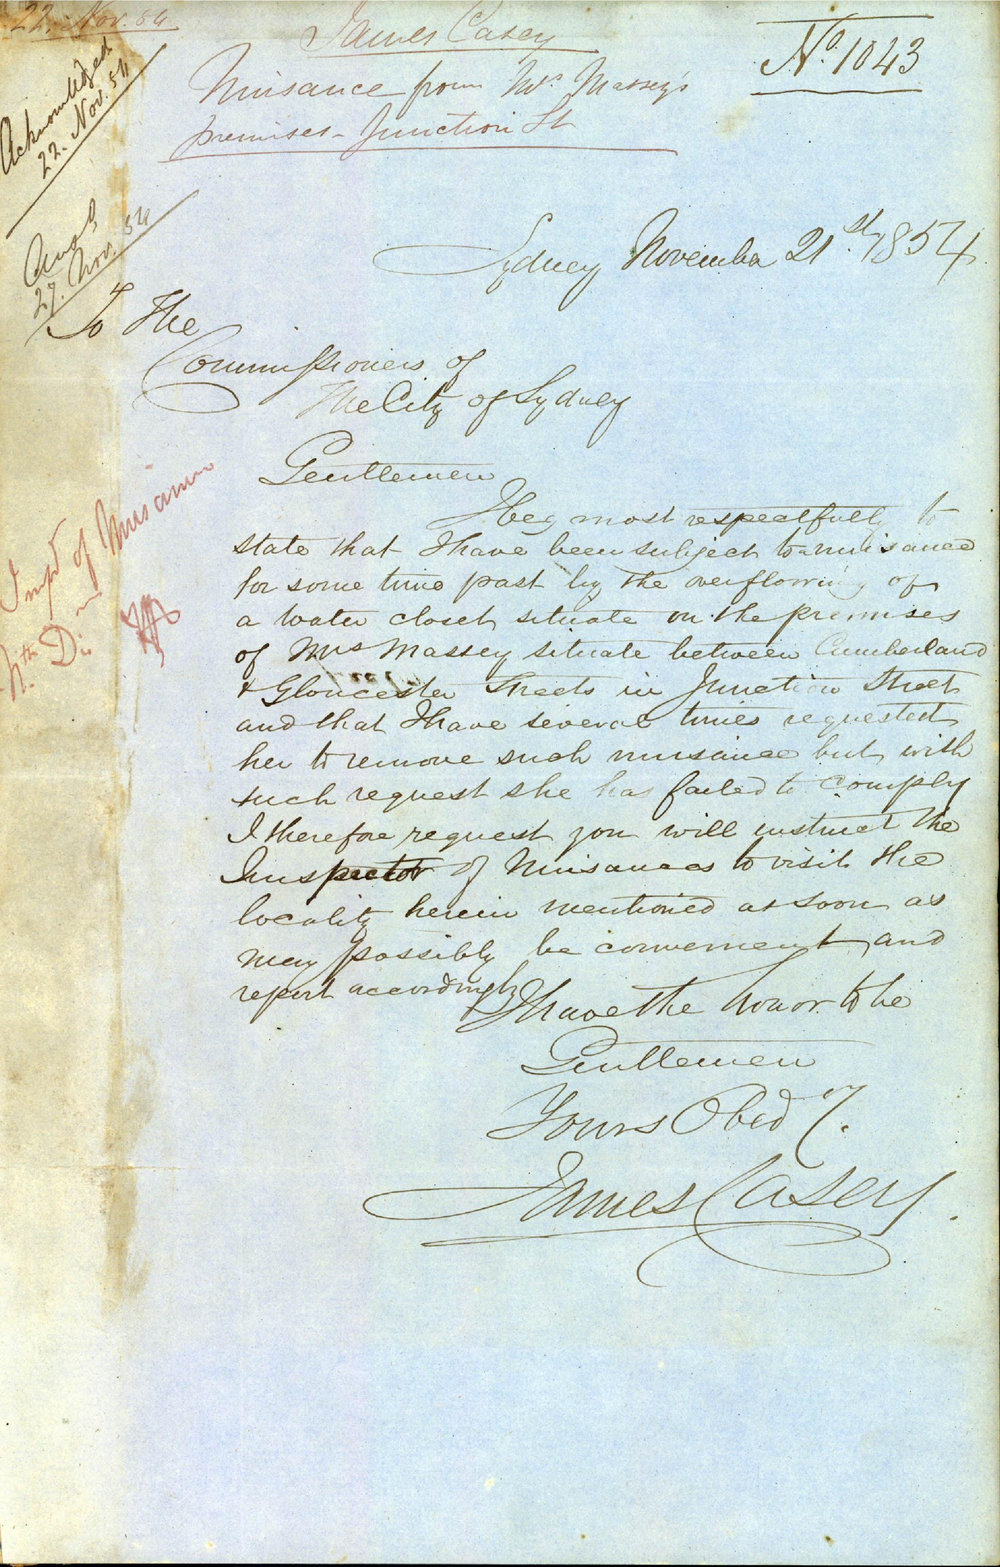 22. Nov. 54
James Casey
No. 1043
Nuisance from Mrs Massey's
premises - Junction St
Acknowledged
22. Nov. 54
Ansd
27. Nov. 54
Sydney November 21st 1854
To The
Commissioners of
The City of Sydney
Gentlemen
I beg most respectfully to
state that I have been subject to nuisance
for some time past by the overflowing of
a water closet situate on the premises
of Mrs Massey situate between Cumberland
& Gloucester Streets in Junction Street
and that I have several times requested
her to remove such nuisance but with
such request she has failed to comply
I therefore request you will instruct the
Inspector of Nuisances to visit the
locality herein mentioned as soon as
may possibly be convenient and
report accordingly
I have the honor to be
Gentlemen
Yours Obedt.
James Casey.
Inspr of Nuisance
Nth Dn